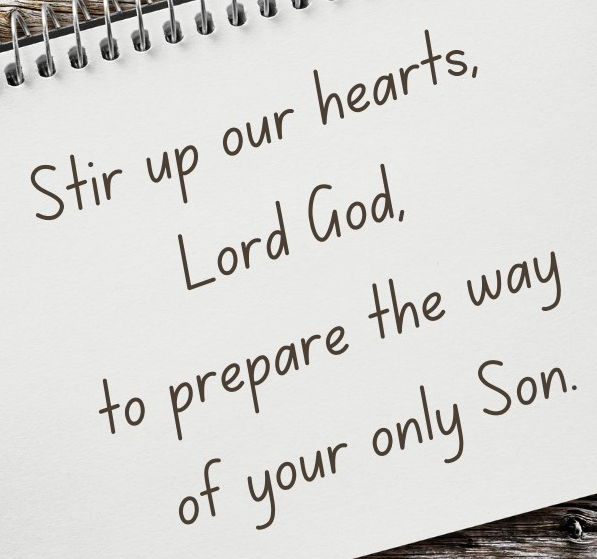 Stir up our hearts,
Lord God,
to prepare the way
of your only Son.